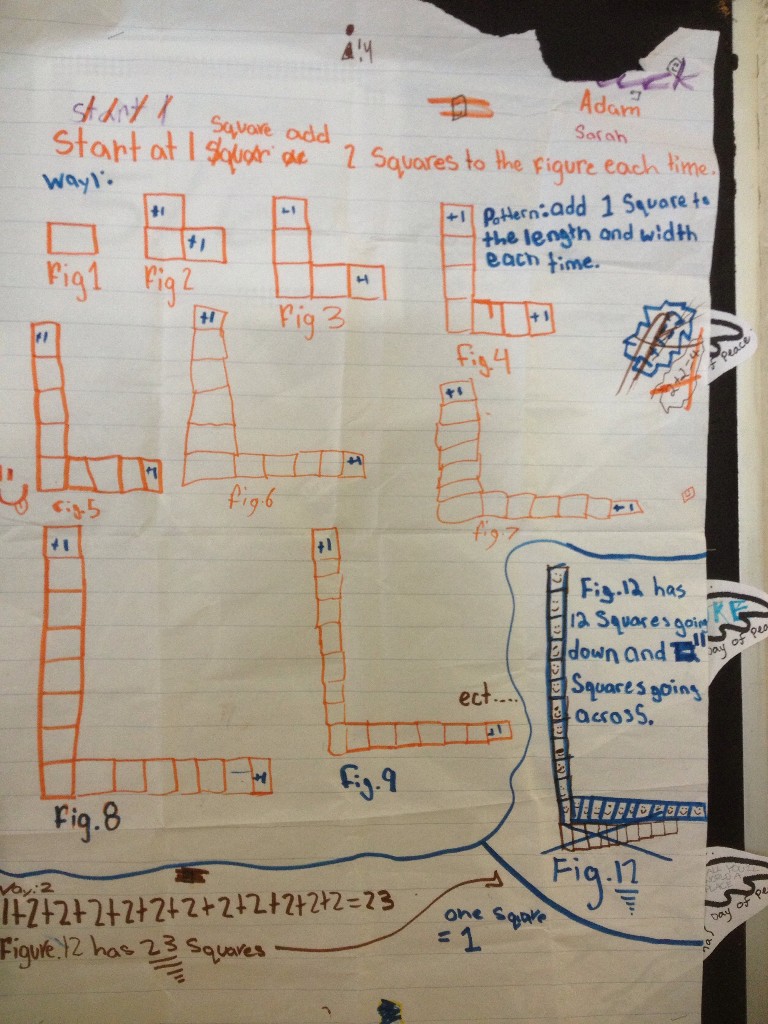 start 1
Adam
Sarah
Square add
Start at 1 2 Squares to the Figure each time.
Way1:
+1
+1
Fig1
Fig 2
+1
+1
Fig 3
+1
+1
Fig.4
Pattern: add 1 Square to
the length and width
each time.
+1
+1
Fig.5
+1
+1
Fig.6
+1
+1
Fig.7
+1
+1
Fig.8
+1
+1
Fig.9
ect....
Fig.12 has
12 Squares going
down and 11
Squares going
across.
Fig.12
way:2
1+2+2+2+2+2+2+2+2+2+2+2=23
Figure.12 has 23 Squares
one square
= 1
of Peace
KE
Day of Pea
Day of Pe